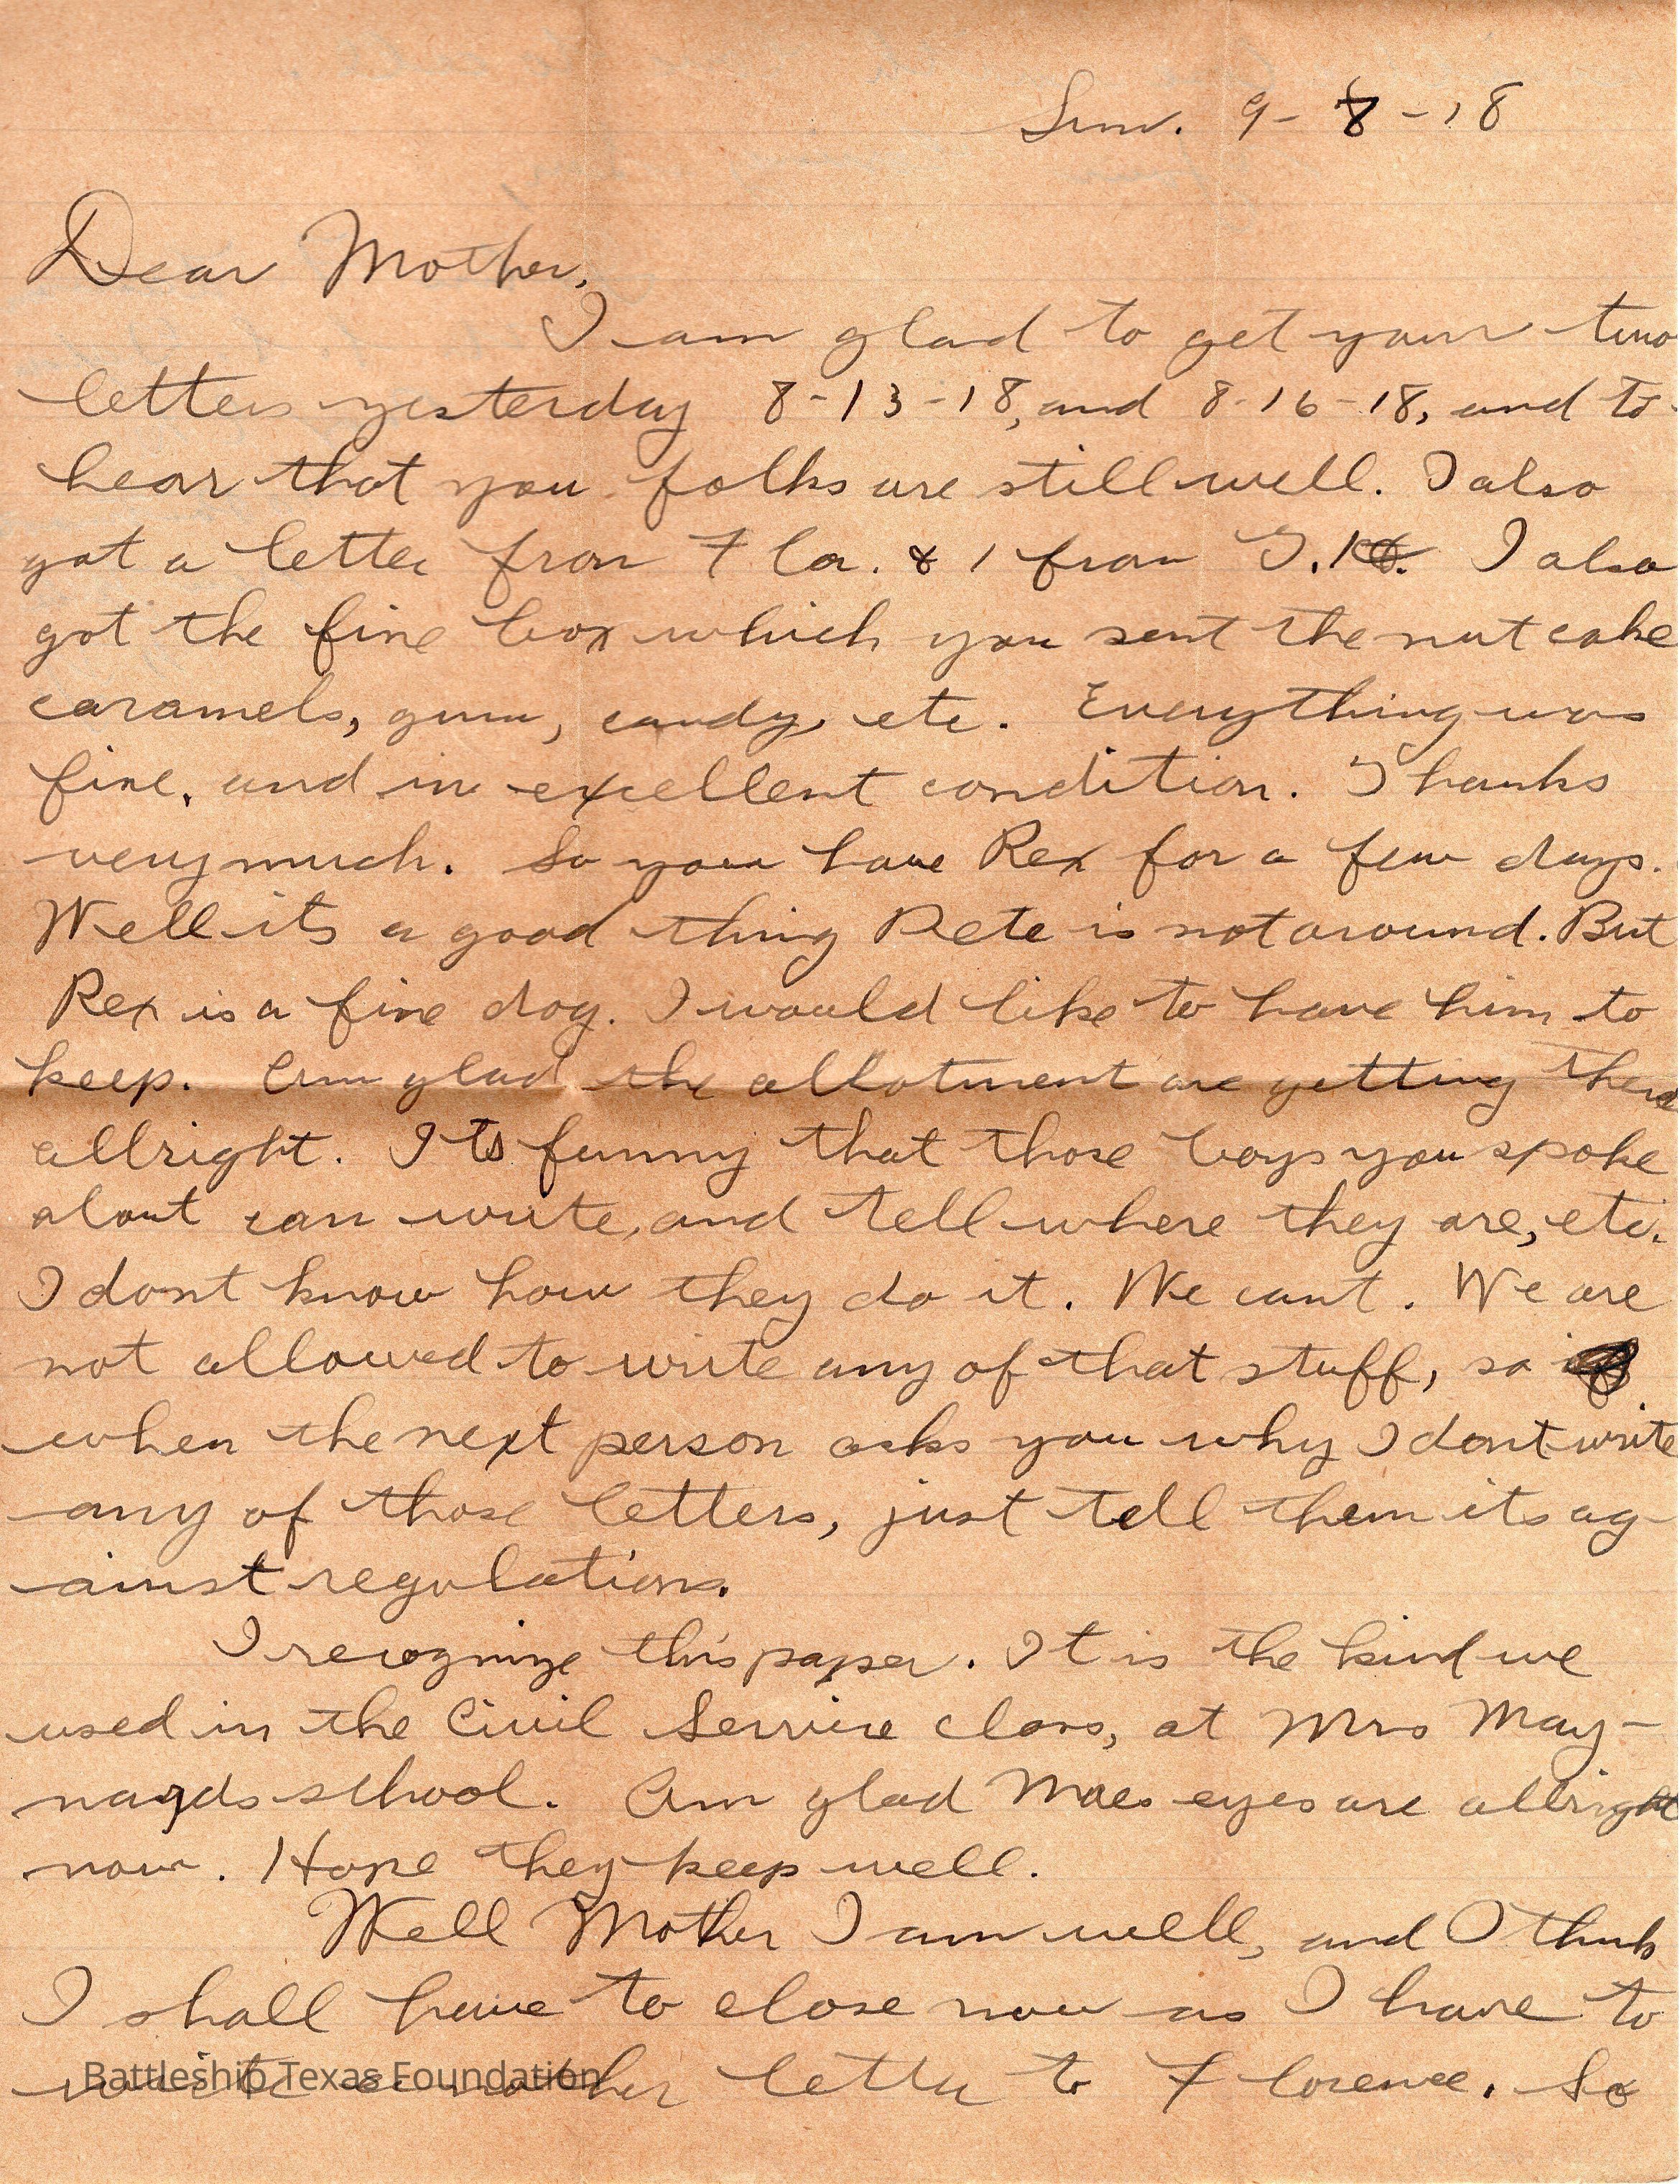 Sun. 9-8-18
Dear Mother,
I am glad to get your two
letters yesterday 8-13-18, and 8-16-18, and to
hear that you folks are still well. I also
got a letter from Flo. & 1 from I also
got the fine box which you sent the nut cake
caramels, gum, candy, etc. Everything was
fine, and in excellent condition. Thanks
very much. So you have Rex for a few days.
Well its a good thing Pete is not around. But
Rex is a fine dog. I would like to have him to
keep. Am glad the allotment are getting there
allright. Its funny that those boys you spoke
about can write, and tell where they are, etc.
I dont know how they do it. We cant. We are
not allowed to write any of that stuff, so
when the next person asks you why I dont write
any of those letters, just tell them its ag-
ainst regulations.
I recognize this paper. It is the kind we
used in the Civil Service class, at Mrs May-
nards school. Am glad Maes eyes are allright
now. Hope they keep well.
Well Mother I am well, and I think
I shall have to close now as I have to
write another letter to Florence. So
Battleship Texas Foundation